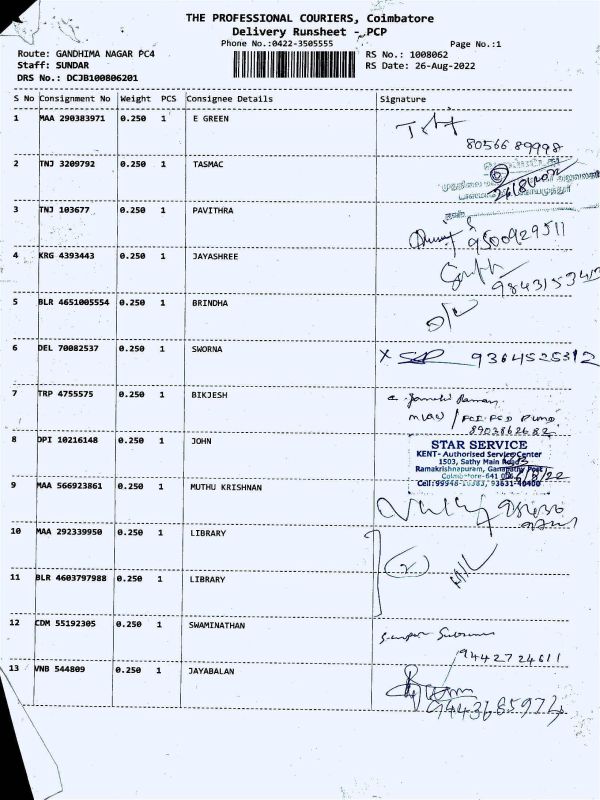 THE PROFESSIONAL COURIERS, Coimbatore
Delivery Runsheet - PCP
Phone No.:0422-3505555 Page No.:1
Route: GANDHIMA NAGAR PC4 RS No.: 1008062
Staff: SUNDAR RS Date: 26-Aug-2022
DRS No.: DCJB100806201
S No Consignment No Weight PCS Consignee Details Signature
1 MAA 290383971 0.250 1 E GREEN
80566 89998
2 TNJ 3209792 0.250 1 TASMAC
3 TNJ 103677 0.250 1 PAVITHRA
9500929511
4 KRG 4393443 0.250 1 JAYASHREE
5 BLR 4651005554 0.250 1 BRINDHA
6 DEL 70082537 0.250 1 SWORNA
9364525312
7 TRP 4755575 0.250 1 BIKJESH
8903862682
8 DPI 10216148 0.250 1 JOHN
STAR SERVICE
KENT- Authorised Service Center
1503, Sathy Main
Ramakrishnapuram, Ganapathy Post
9 MAA 566923861 0.250 1 MUTHU KRISHNAN
10 MAA 292339950 0.250 1 LIBRARY
11 BLR 4603797988 0.250 1 LIBRARY
12 CDM 55192305 0.250 1 SWAMINATHAN
9442724611
13 VNB 544809 0.250 1 JAYABALAN